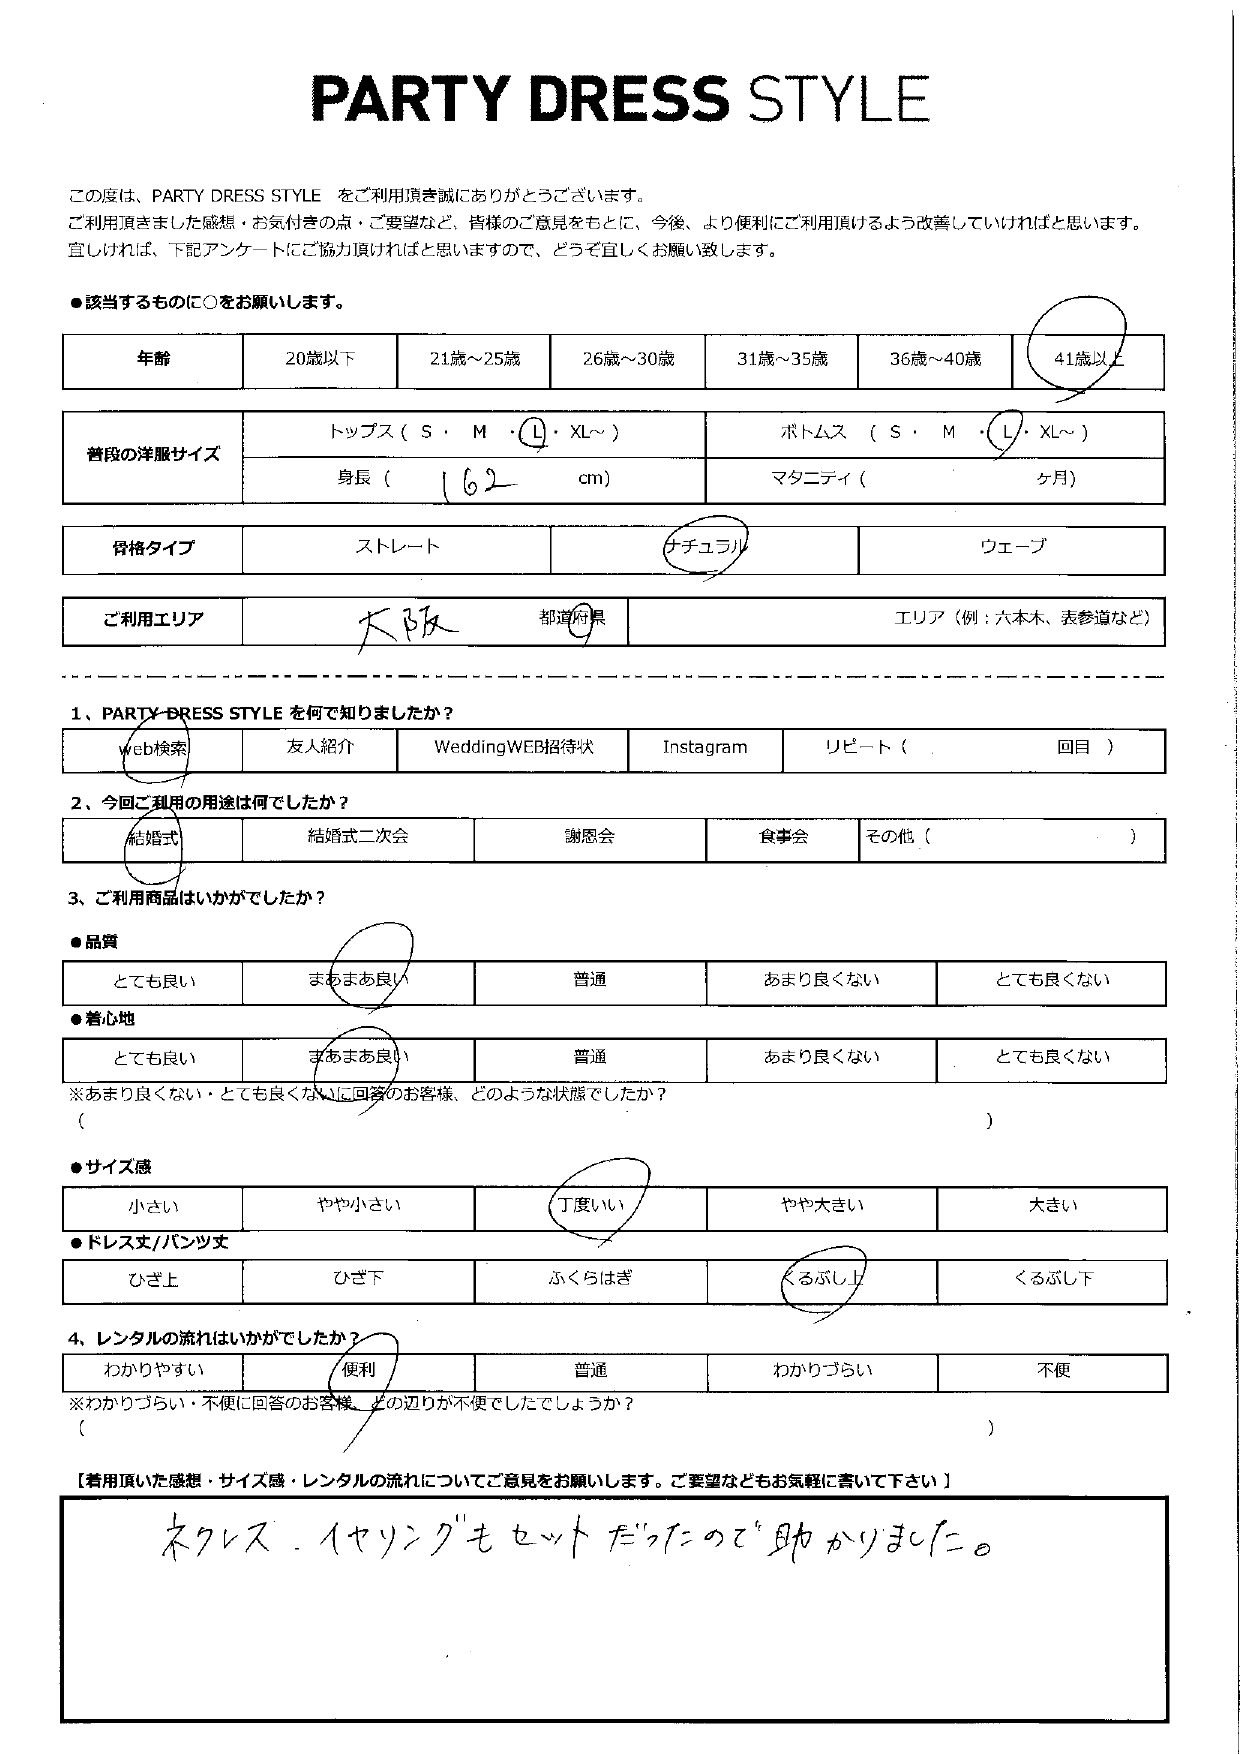 PARTY DRESS STYLE
この度は、PARTY DRESS STYLE をご利用頂き誠にありがとうございます。
ご利用頂きました感想・お気付きの点・ご要望など、皆様のご意見をもとに、今後、より便利にご利用頂けるよう改善していければと思います。
宜しければ、下記アンケートにご協力頂ければと思いますので、どうぞ宜しくお願い致します。
●該当するものに○をお願いします。
年齢 20歳以下 21歳～25歳 26歳～30歳 31歳～35歳 36歳～40歳 41歳以上
普段の洋服サイズ
トップス ( S ・ M ・ L ・ XL～ ) ボトムス ( S ・ M ・ L ・ XL～ )
身長 ( 162 cm) マタニティ ( ケ月)
骨格タイプ ストレート ナチュラル ウェーブ
ご利用エリア 大阪 都道府県 エリア（例：六本木、表参道など）
1、PARTY DRESS STYLE を何で知りましたか？
web検索 友人紹介 WeddingWEB招待状 Instagram リピート ( 回目 )
2、今回ご利用の用途は何でしたか？
結婚式 結婚式二次会 謝恩会 食事会 その他 ( )
3、ご利用商品はいかがでしたか？
●品質
とても良い まあまあ良い 普通 あまり良くない とても良くない
●着心地
とても良い まあまあ良い 普通 あまり良くない とても良くない
※あまり良くない・とても良くないに回答のお客様、どのような状態でしたか？
( )
●サイズ感
小さい やや小さい 丁度いい やや大きい 大きい
●ドレス丈/パンツ丈
ひざ上 ひざ下 ふくらはぎ くるぶし上 くるぶし下
4、レンタルの流れはいかがでしたか？
わかりやすい 便利 普通 わかりづらい 不便
※わかりづらい・不便に回答のお客様、どの辺りが不便でしたでしょうか？
( )
【着用頂いた感想・サイズ感・レンタルの流れについてご意見をお願いします。ご要望などもお気軽に書いて下さい】
ネクレス．イヤリングもセットだったので助かりました。